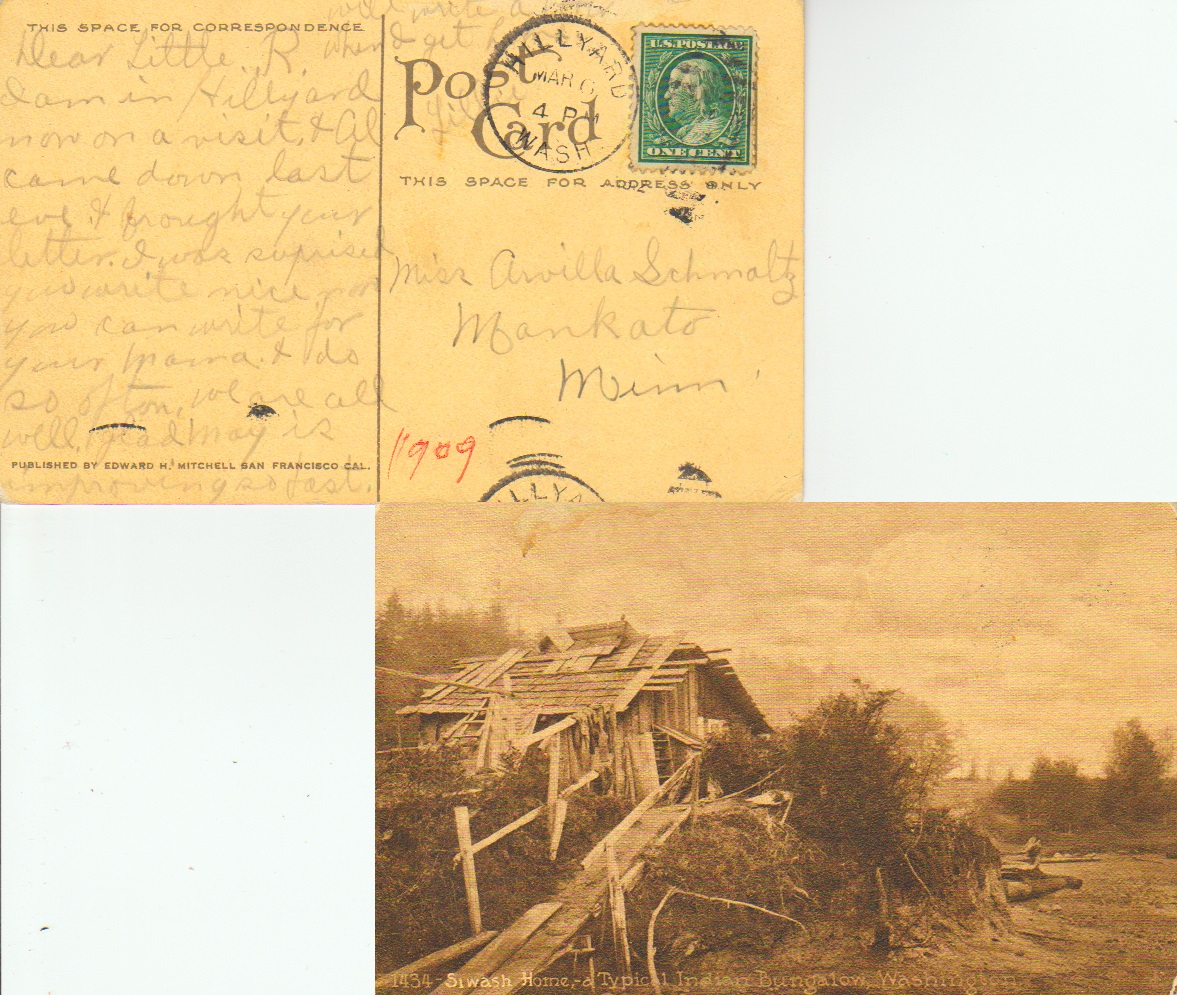 THIS SPACE FOR CORRESPONDENCE
Dear Little R.
I am in Hillyard
now on a visit, & Al
came down last
eve & brought your
letter. I was suprised
you write nice now
you can write for
your Mama. & do
so often, we are all
well, glad May is
improving so fast.
will write a
when I get
PUBLISHED BY EDWARD H. MITCHELL SAN FRANCISCO CAL.
Post
Card
HILLYARD
MAR 6
4 PM
WASH
U.S. POSTAGE
ONE CENT
THIS SPACE FOR ADDRESS ONLY
Miss Arvilla Schmaltz
Mankato
Minn.
1909
HILLYA
1434 - Siwash Home, - a Typical Indian Bungalow, Washington